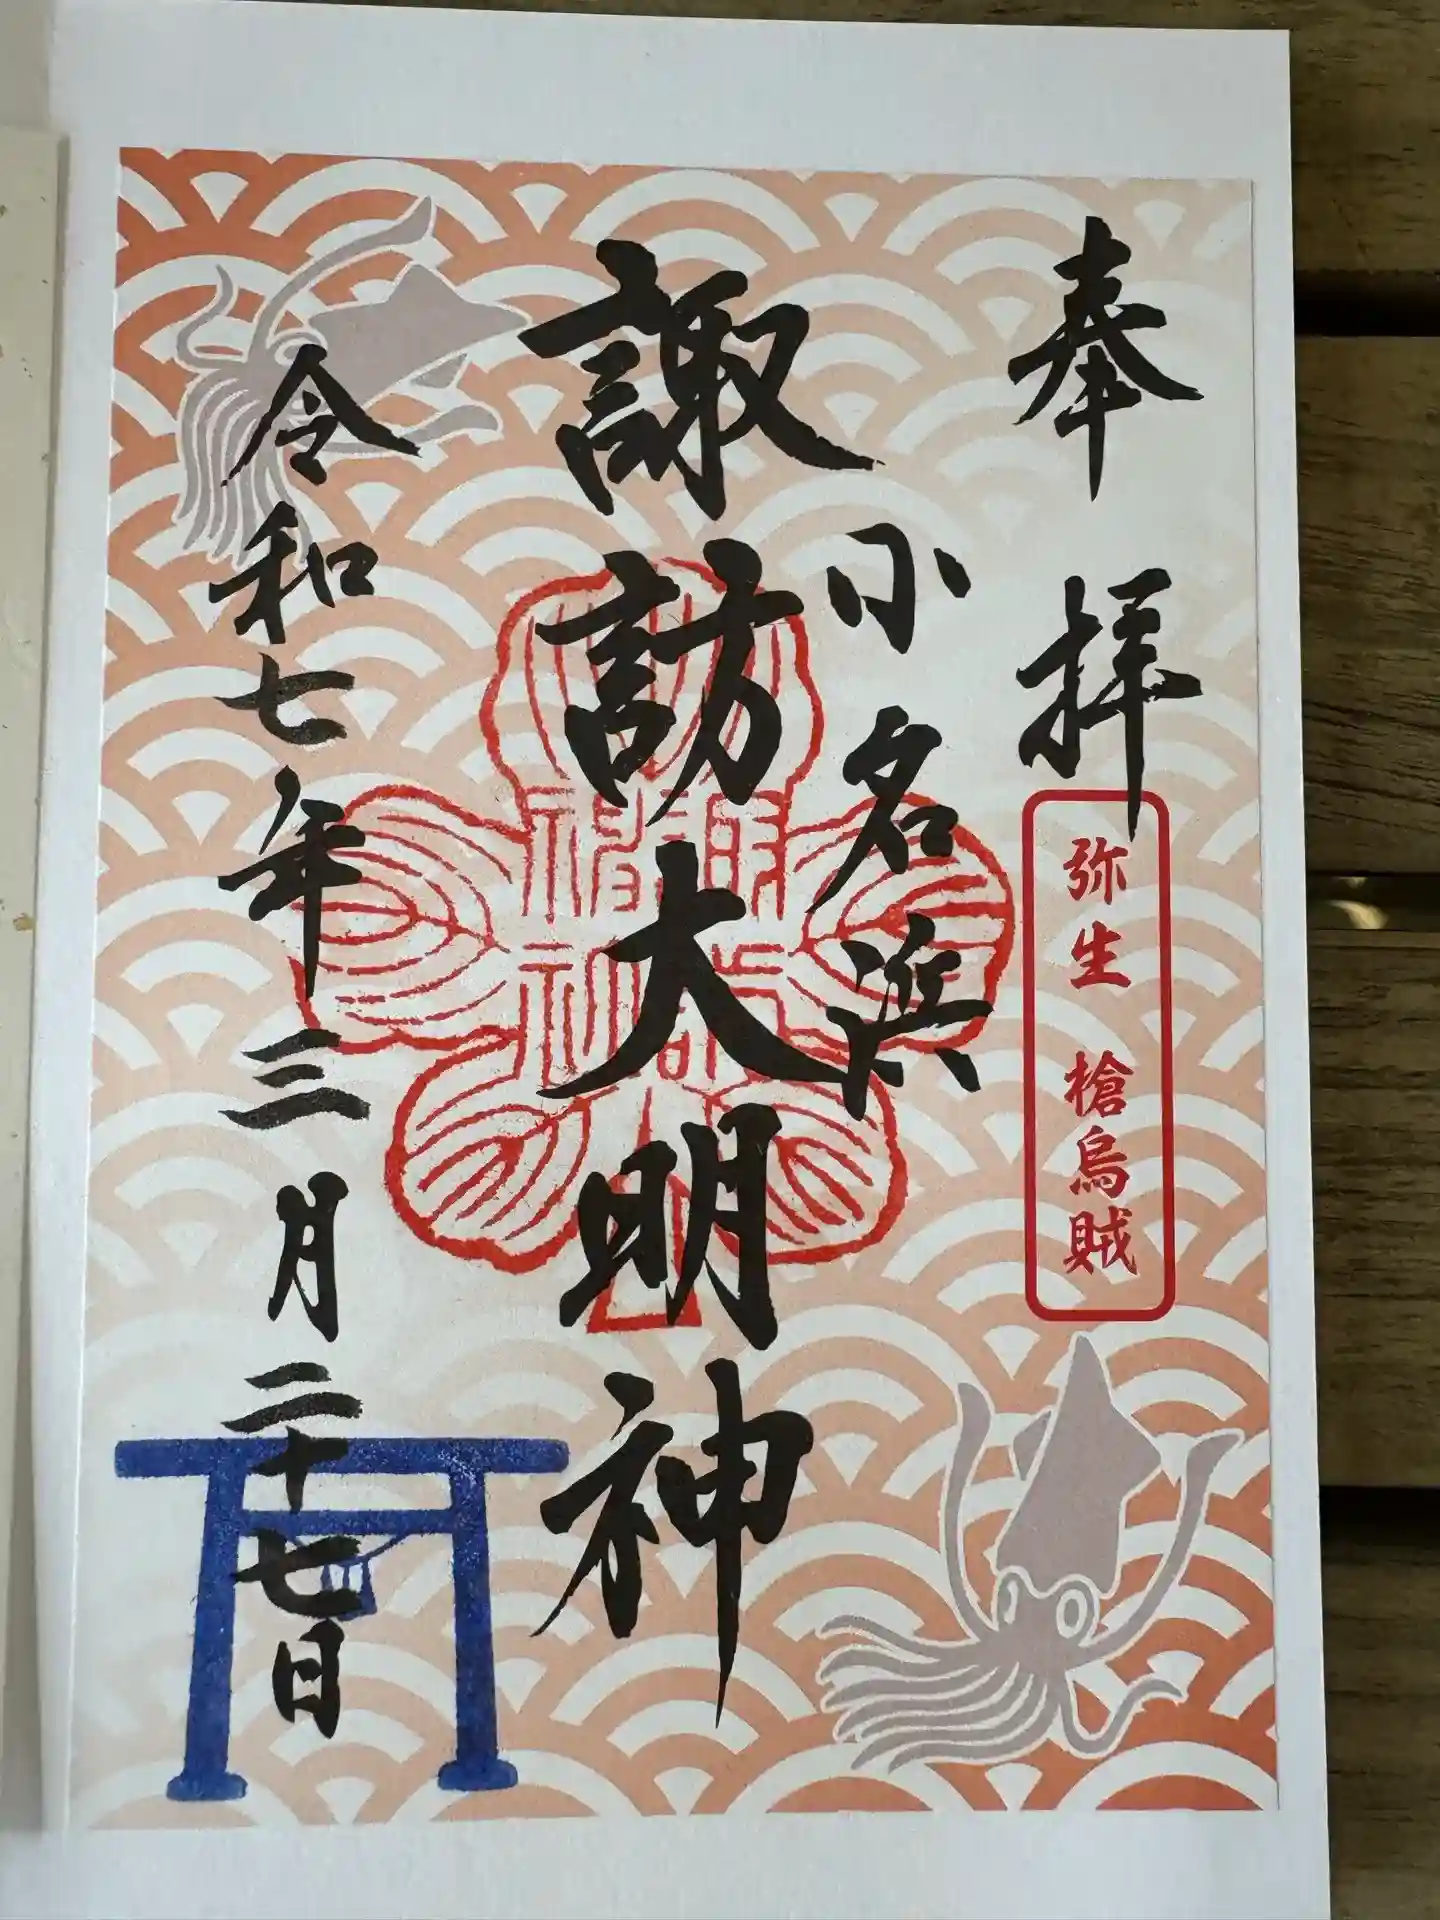 奉拝
弥生 槍烏賊
小名浜
諏訪大明神
令和七年三月二十七日